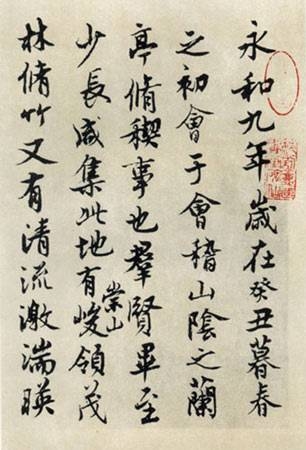 永和九年歲在癸丑暮春
之初會于會稽山陰之蘭
亭脩稧事也羣賢畢至
少長咸集此地有崇山峻領茂
林脩竹又有清流激湍暎